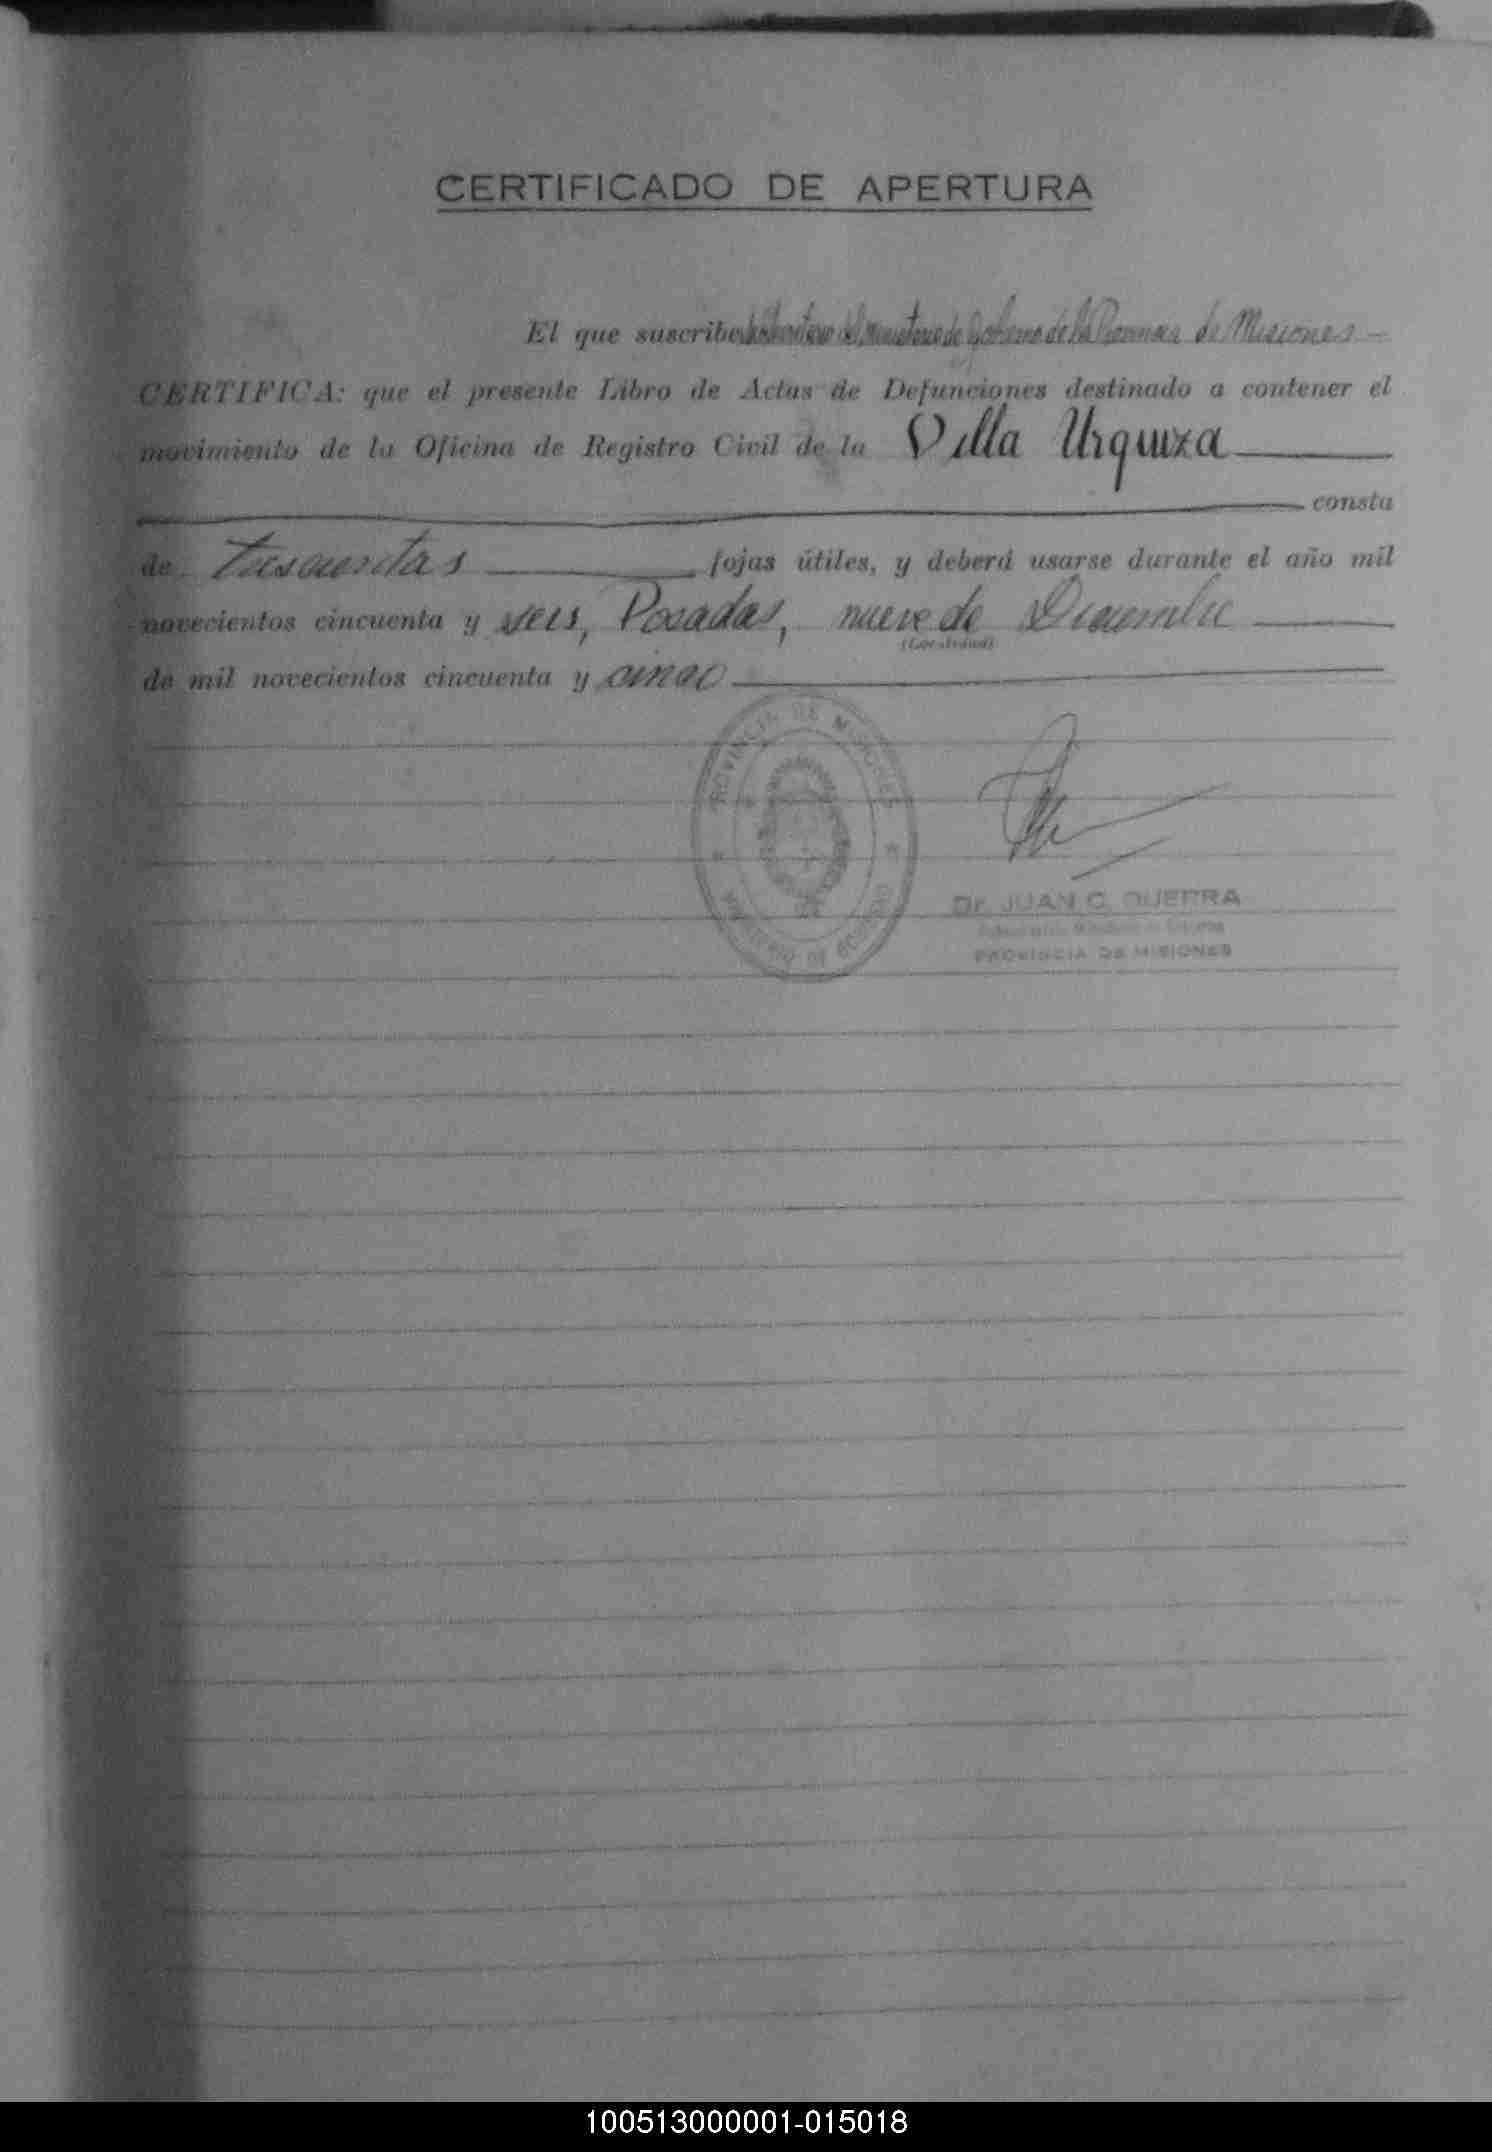 CERTIFICADO DE APERTURA
El que suscribe Subsecretario del Ministerio de Gobierno de la Provincia de Misiones
CERTIFICA: que el presente Libro de Actas de Defunciones destinado a contener el
movimiento de la Oficina de Registro Civil de la Villa Urquiza
consta
de trescientas fojas útiles, y deberá usarse durante el año mil
novecientos cincuenta y seis, Posadas, nueve de Diciembre
(Localidad)
de mil novecientos cincuenta y cinco
PROVINCIA DE MISIONES
MINISTERIO DE GOBIERNO
Dr. JUAN C. GUERRA
PROVINCIA DE MISIONES
100513000001-015018